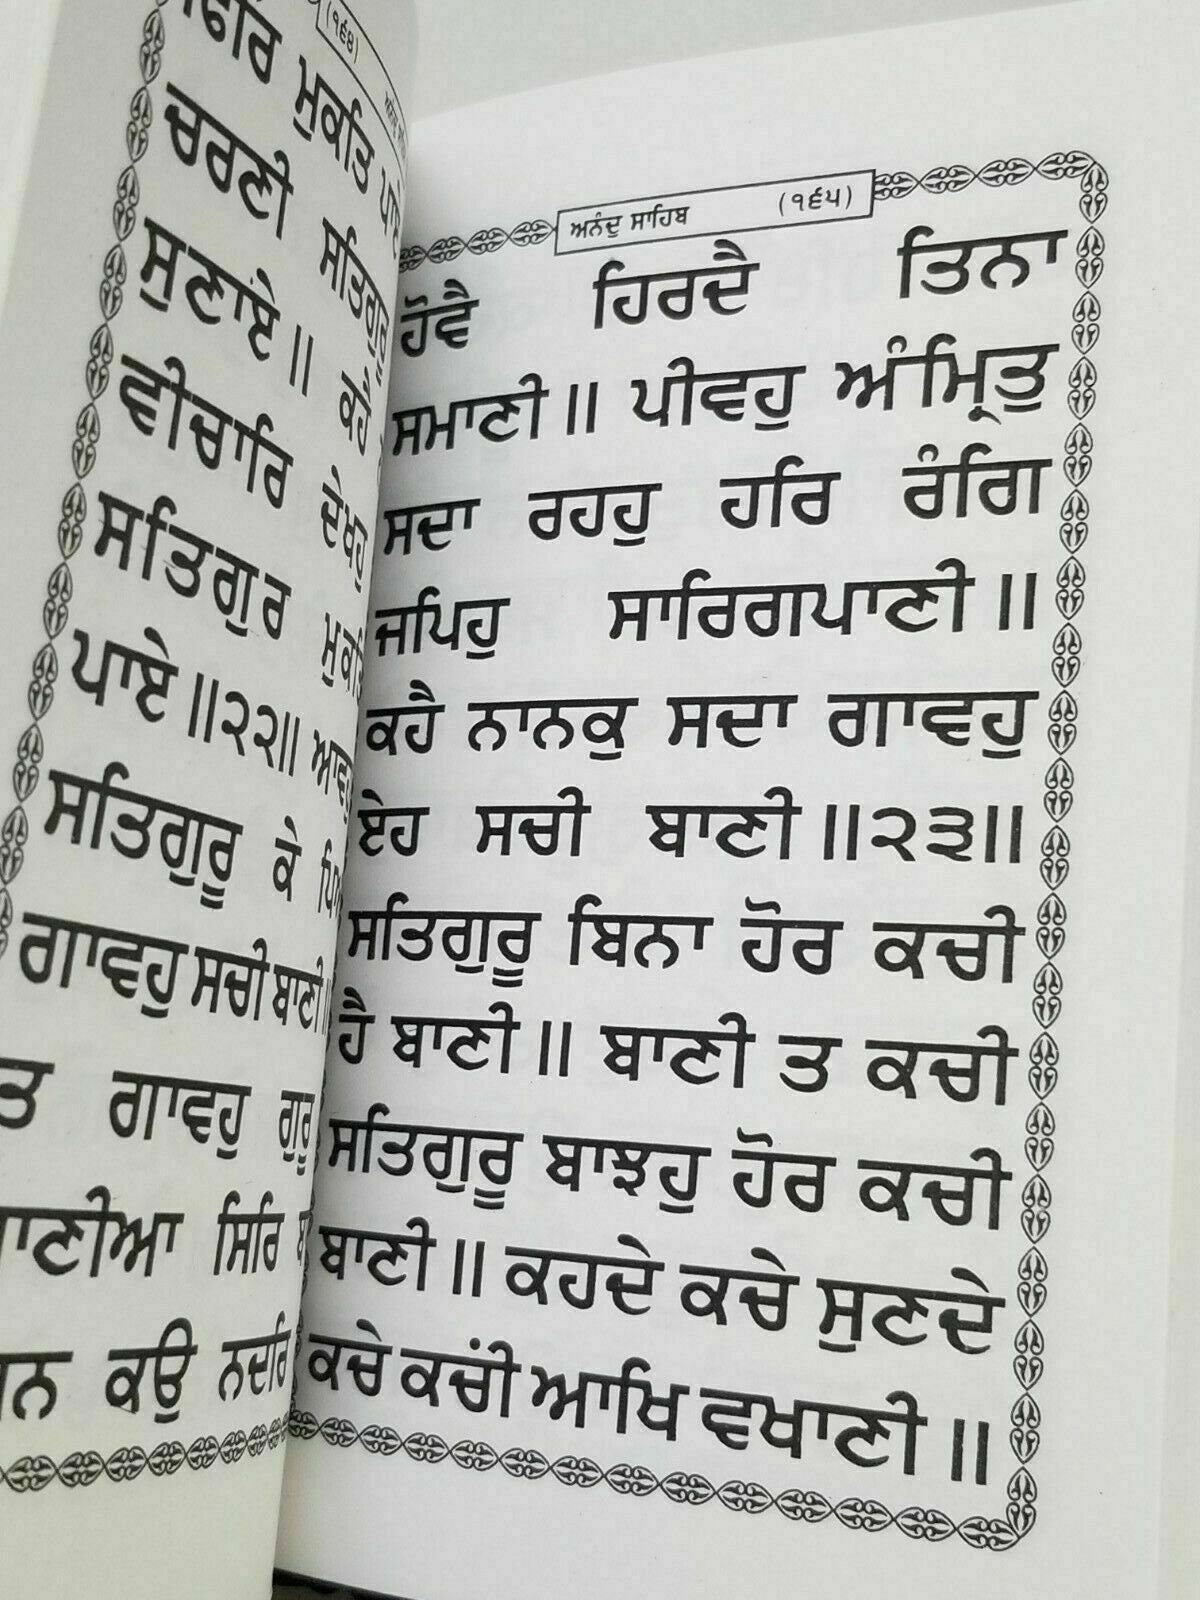 (੧੬੪)
ਮੁਕਤਿ
ਚਰਣੀ ਸਤਿਗੁਰੂ
ਸੁਣਾਏ॥ ਕਹੈ
ਵੀਚਾਰਿ ਦੇਖਹੁ
ਸਤਿਗੁਰ
ਪਾਏ॥੨੨॥
ਸਤਿਗੁਰੂ ਕੇ
ਗਾਵਹੁ ਸਚੀ ਬਾਣੀ॥
ਤ ਗਾਵਹੁ ਗੁਰੂ
ਸਿਰਿ
ਕਉ ਨਦਰਿ
ਅਨੰਦੁ ਸਾਹਿਬ (੧੬੫)
ਹੋਵੈ ਹਿਰਦੈ ਤਿਨਾ
ਸਮਾਣੀ॥ ਪੀਵਹੁ ਅੰਮ੍ਰਿਤੁ
ਸਦਾ ਰਹਹੁ ਹਰਿ ਰੰਗਿ
ਜਪਿਹੁ ਸਾਰਿਗਪਾਣੀ॥
ਕਹੈ ਨਾਨਕੁ ਸਦਾ ਗਾਵਹੁ
ਏਹ ਸਚੀ ਬਾਣੀ॥੨੩॥
ਸਤਿਗੁਰੂ ਬਿਨਾ ਹੋਰ ਕਚੀ
ਹੈ ਬਾਣੀ॥ ਬਾਣੀ ਤ ਕਚੀ
ਸਤਿਗੁਰੂ ਬਾਝਹੁ ਹੋਰ ਕਚੀ
ਬਾਣੀ॥ ਕਹਦੇ ਕਚੇ ਸੁਣਦੇ
ਕਚੇ ਕਚੀਂ ਆਖਿ ਵਖਾਣੀ॥